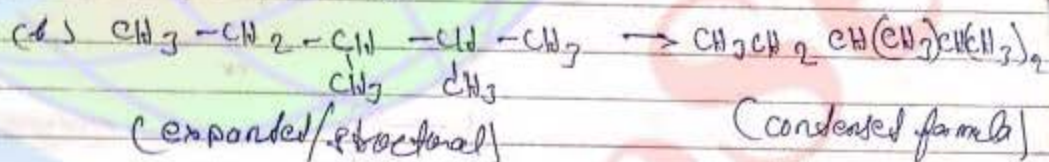 (b) CH3 - CH2 - CH - CH - CH3 → CH3CH2 CH(CH3)CH(CH3)2
CH3 CH3
(expanded/structural) (condensed formula)